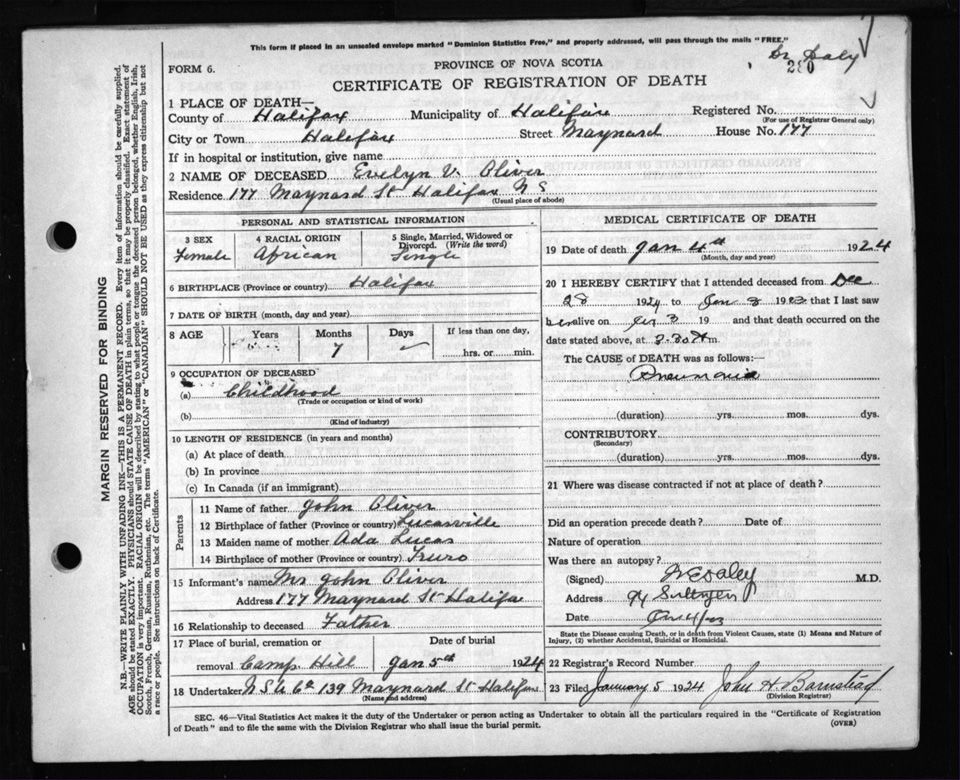 This form if placed in an unsealed envelope marked "Dominion Statistics Free," and properly addressed, will pass through the mails "FREE."
Dr Daly
FORM 6.
PROVINCE OF NOVA SCOTIA
CERTIFICATE OF REGISTRATION OF DEATH
1 PLACE OF DEATH—
County of Halifax Municipality of Halifax Registered No.
(For use of Registrar General only)
City or Town Halifax Street Maynard House No. 177
If in hospital or institution, give name
2 NAME OF DECEASED Evelyn V. Oliver
Residence 177 Maynard St Halifax N S
(Usual place of abode)
PERSONAL AND STATISTICAL INFORMATION
3 SEX 4 RACIAL ORIGIN 5 Single, Married, Widowed or Divorced. (Write the word)
Female African Single
6 BIRTHPLACE (Province or country) Halifax
7 DATE OF BIRTH (month, day and year)
8 AGE Years Months Days If less than one day,
7 hrs. or min.
9 OCCUPATION OF DECEASED
(a) Childhood
(Trade or occupation or kind of work)
(b)
(Kind of industry)
10 LENGTH OF RESIDENCE (in years and months)
(a) At place of death
(b) In province
(c) In Canada (if an immigrant)
Parents
11 Name of father John Oliver
12 Birthplace of father (Province or country) Lucasville
13 Maiden name of mother Ada Lucas
14 Birthplace of mother (Province or country) Truro
15 Informant's name Mrs John Oliver
Address 177 Maynard St Halifa
16 Relationship to deceased Father
17 Place of burial, cremation or Date of burial
removal Camp Hill Jan 5th 1924
18 Undertaker N S U Co 139 Maynard St Halifax
(Name and address)
MEDICAL CERTIFICATE OF DEATH
19 Date of death Jan 4th 1924
(Month, day and year)
20 I HEREBY CERTIFY that I attended deceased from Dec
28 1924 to Jan 3 1923 that I last saw
her alive on Jan 3 19 and that death occurred on the
date stated above, at m.
The CAUSE OF DEATH was as follows:—
Pneumonia
(duration) yrs. mos. dys.
CONTRIBUTORY
(Secondary)
(duration) yrs. mos. dys.
21 Where was disease contracted if not at place of death?
Did an operation precede death? Date of
Nature of operation
Was there an autopsy?
(Signed) Daley M.D.
Address
Date
State the Disease causing Death, or in death from Violent Causes, state (1) Means and Nature of Injury, (2) whether Accidental, Suicidal or Homicidal.
22 Registrar's Record Number
23 Filed January 5 1924 John H Barnstead
(Division Registrar)
SEC. 46—Vital Statistics Act makes it the duty of the Undertaker or person acting as Undertaker to obtain all the particulars required in the "Certificate of Registration
of Death" and to file the same with the Division Registrar who shall issue the burial permit. (OVER)
MARGIN RESERVED FOR BINDING
N.B.—WRITE PLAINLY WITH UNFADING INK—THIS IS A PERMANENT RECORD. Every item of information should be carefully supplied.
AGE should be stated EXACTLY. PHYSICIANS should STATE CAUSE OF DEATH in plain terms, so that it may be properly classified. Exact statement of
OCCUPATION is very important. RACIAL ORIGIN will be described by stating to what people or tongue the deceased person belonged, whether English, Irish,
Scotch, French, German, Russian, Ruthenian, etc. The terms "AMERICAN" or "CANADIAN" SHOULD NOT BE USED as they express citizenship but not
a race or people. See instructions on back of Certificate.